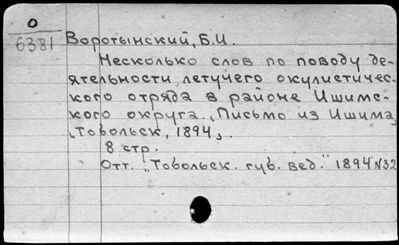 О
6381 Воротынский, Б.И.
Несколько слов по поводу де-
ятельности летучего окулистичес-
кого отряда в районе Ишимс-
кого округа. (Письмо из Ишима)
(Тобольск, 1894).
8 стр.
Отт. "Тобольск. губ. вед." 1894 N32